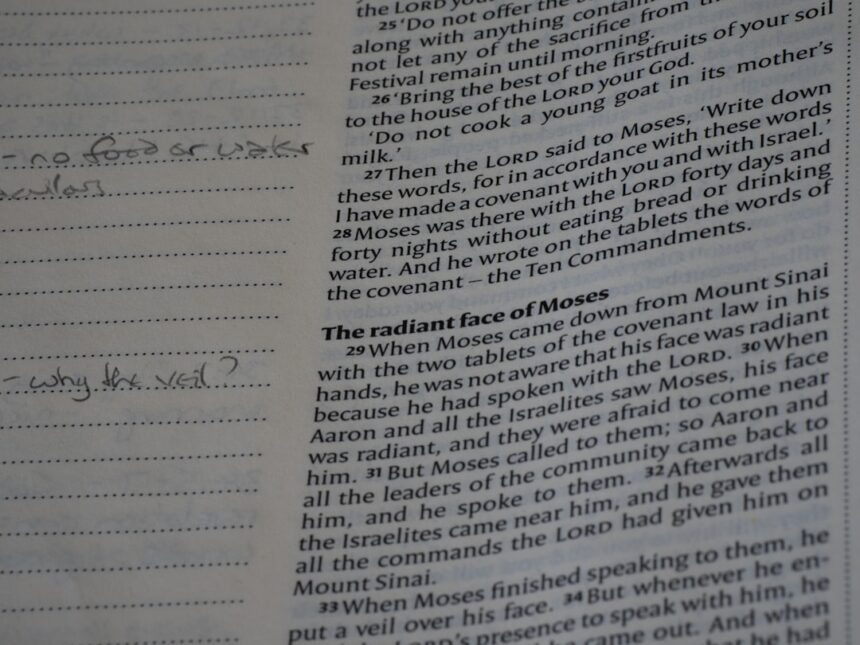 - no food or water
- why the veil?
the LORD your
25 ‘Do not offer the
along with anything contain
not let any of the sacrifice from the
Festival remain until morning.
26 ‘Bring the best of the firstfruits of your soil
to the house of the LORD your God.
‘Do not cook a young goat in its mother’s
milk.’
27 Then the LORD said to Moses, ‘Write down
these words, for in accordance with these words
I have made a covenant with you and with Israel.’
28 Moses was there with the LORD forty days and
forty nights without eating bread or drinking
water. And he wrote on the tablets the words of
the covenant – the Ten Commandments.
The radiant face of Moses
29 When Moses came down from Mount Sinai
with the two tablets of the covenant law in his
hands, he was not aware that his face was radiant
because he had spoken with the LORD. 30 When
Aaron and all the Israelites saw Moses, his face
was radiant, and they were afraid to come near
him. 31 But Moses called to them; so Aaron and
all the leaders of the community came back to
him, and he spoke to them. 32 Afterwards all
the Israelites came near him, and he gave them
all the commands the LORD had given him on
Mount Sinai.
33 When Moses finished speaking to them, he
put a veil over his face. 34 But whenever he en-
LORD’s presence to speak with him, he
came out. And when
he had